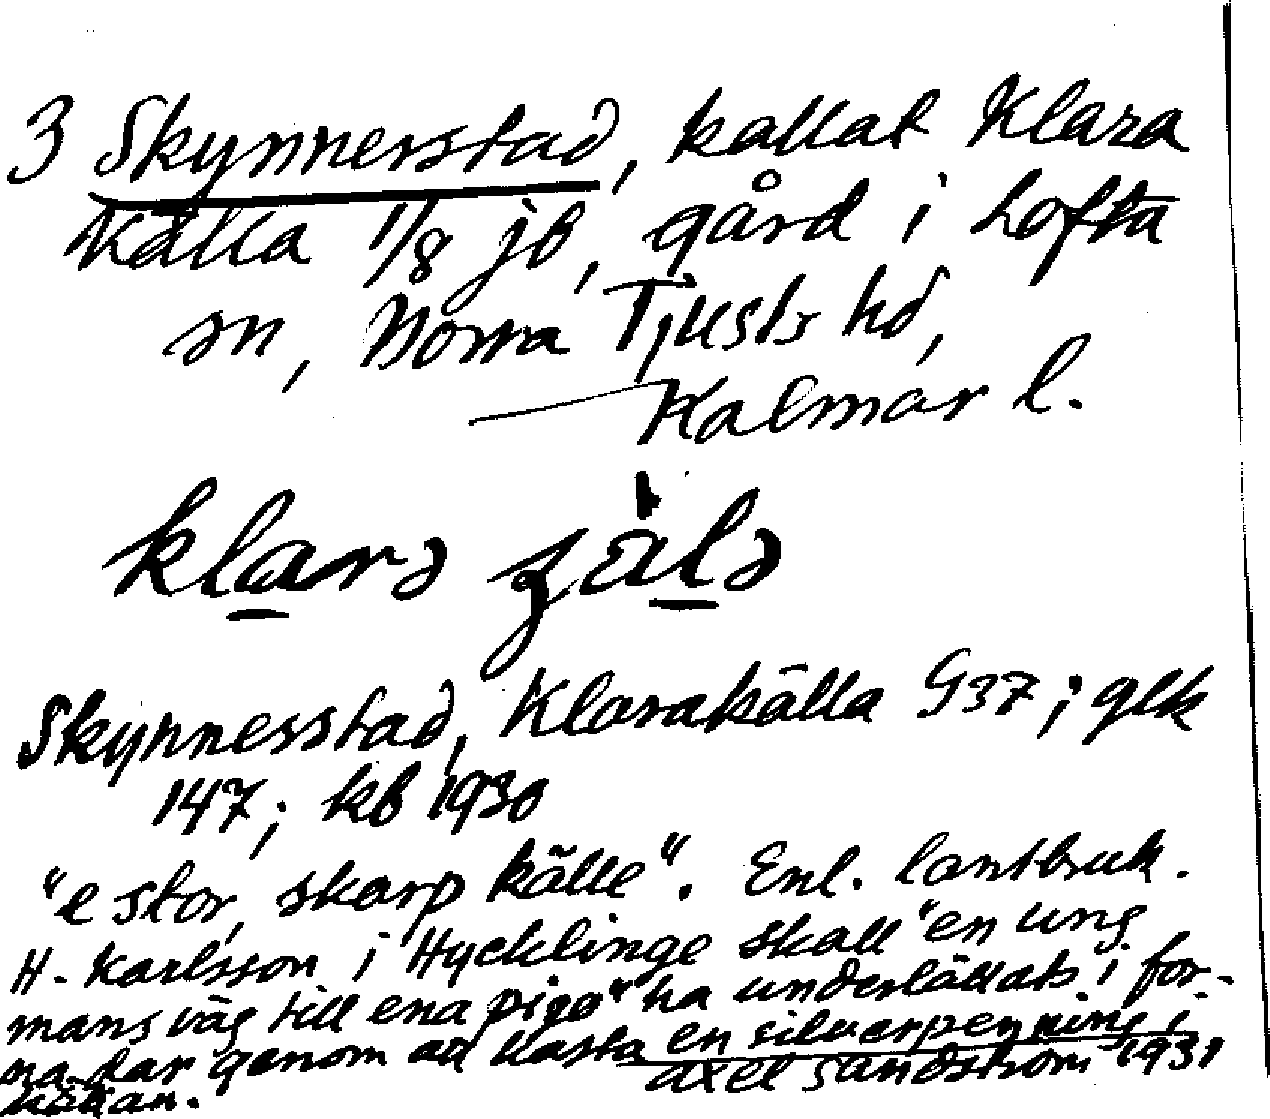 3 Skynnerstad, kallat Klara
källa 1/8 jb, gård i Lofta
sn, Norra Tjusts hd,
Kalmar l.
klarə
Skynnesstad, Klarakälla G37; glk
147; kb 1930
"e stor, skarp källe". Enl. lantbruk.
H. Karlsson i Hycklinge skall "en ung
mans väg till ena piga" ha underlättats i for-
na dar genom att kasta en silverpenning i
källan.
Axel Sandström 1931